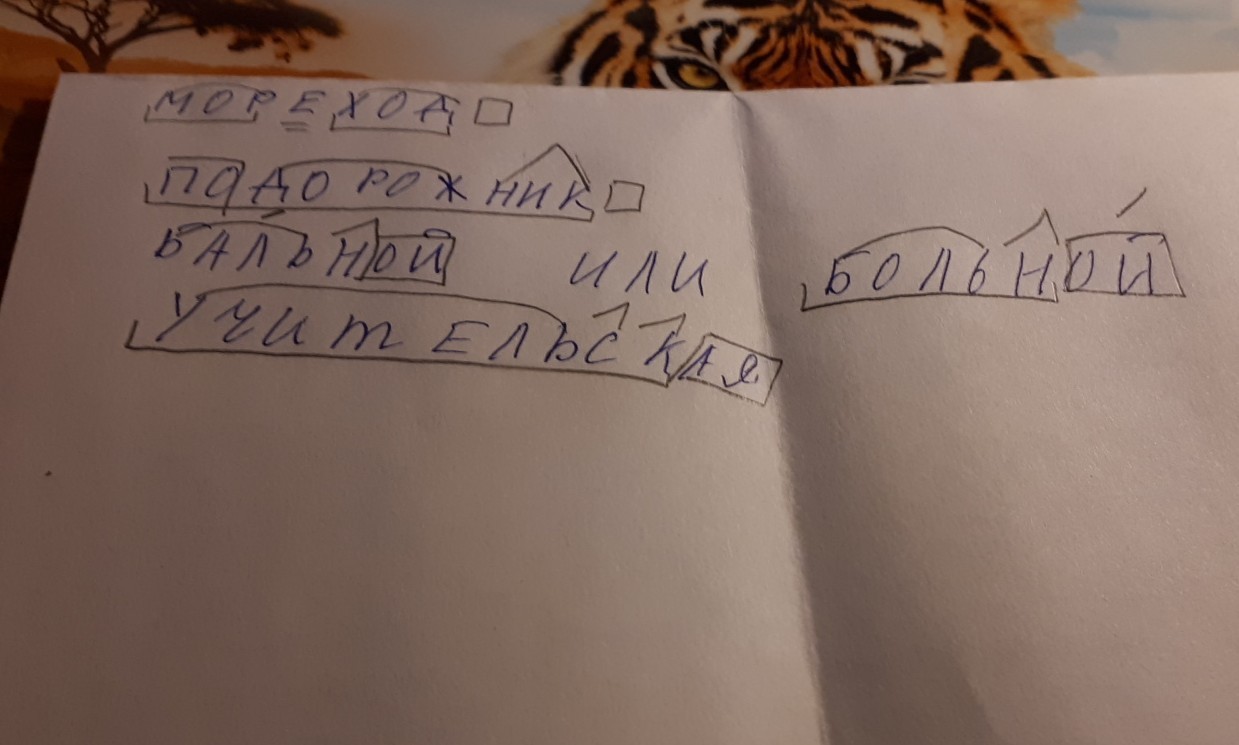 МОРЕХОД
ПОДОРОЖНИК
БАЛЬНОЙ ИЛИ БОЛЬНОЙ
УЧИТЕЛЬСКАЯ